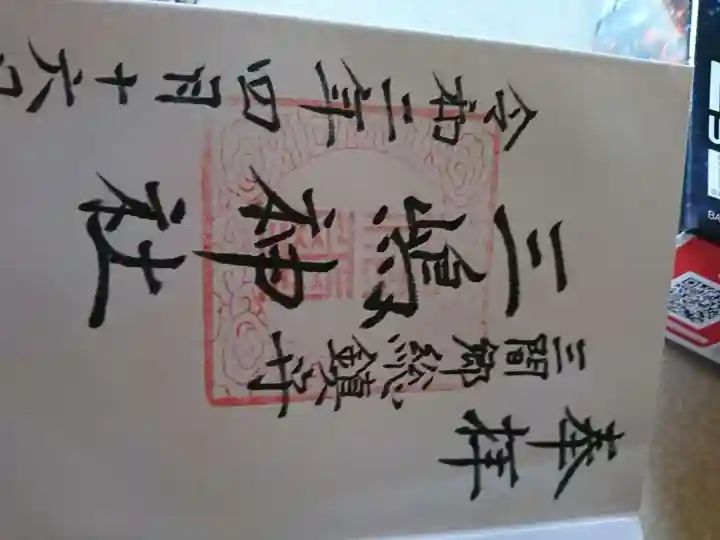 奉拝
三間郷総鎮守
三嶋神社
令和二年四月十六日
BA